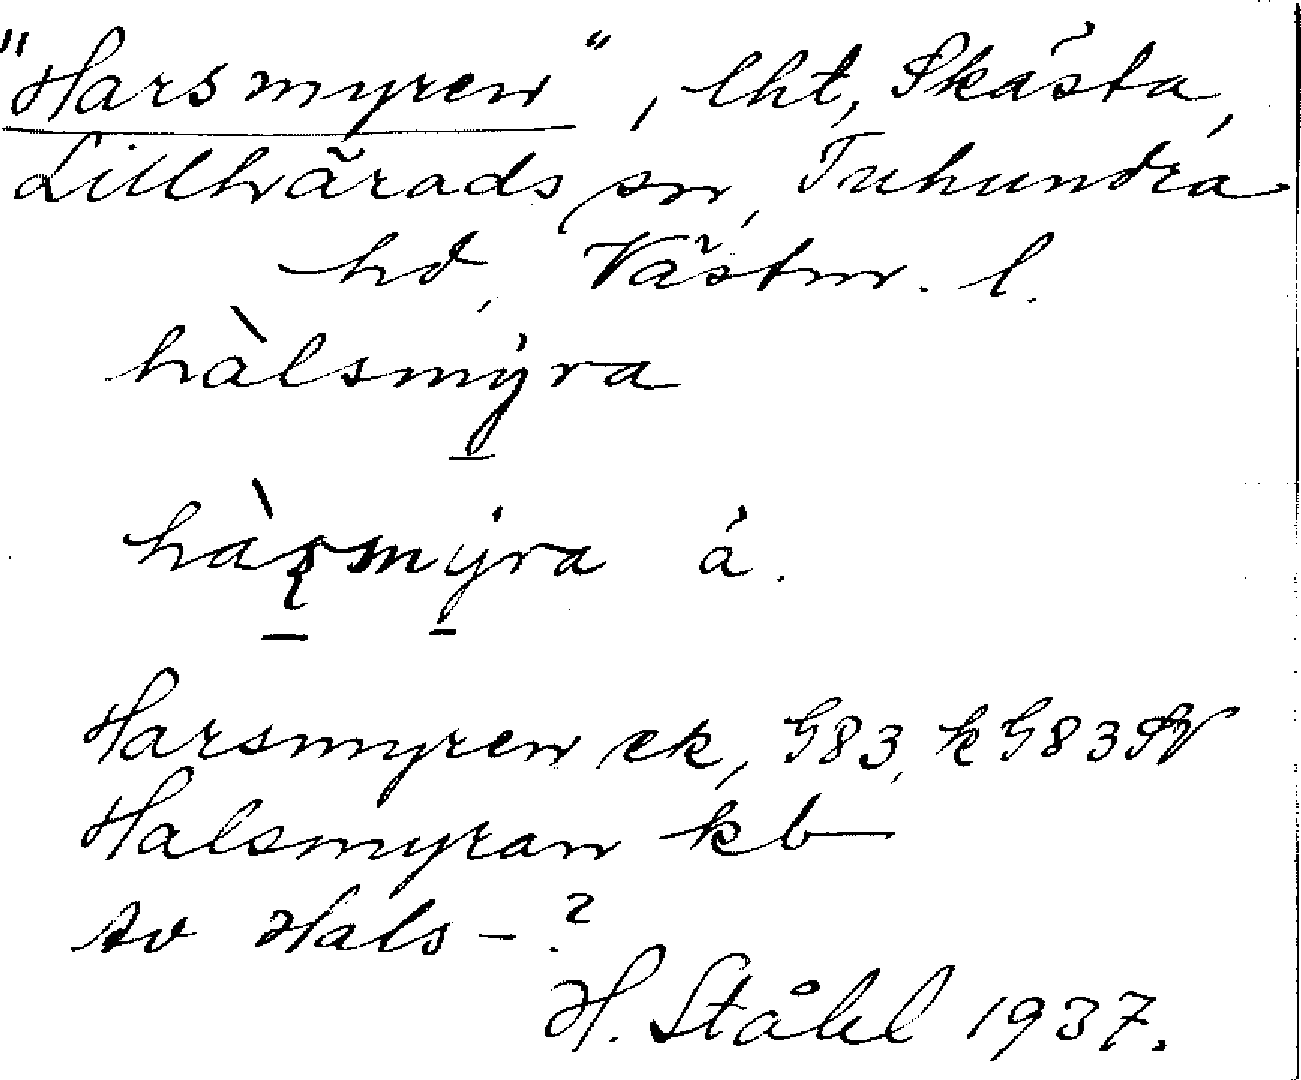 "Harsmyren", lht, Skästa,
Lillhärads sn, Tuhundra
hd, Västm. l.
hàlsmýra
hàʂmýra á.
Harsmyren ek, G83, k G83 SV
Halsmyran kb
Av Hals-?
H. Ståhl 1937.